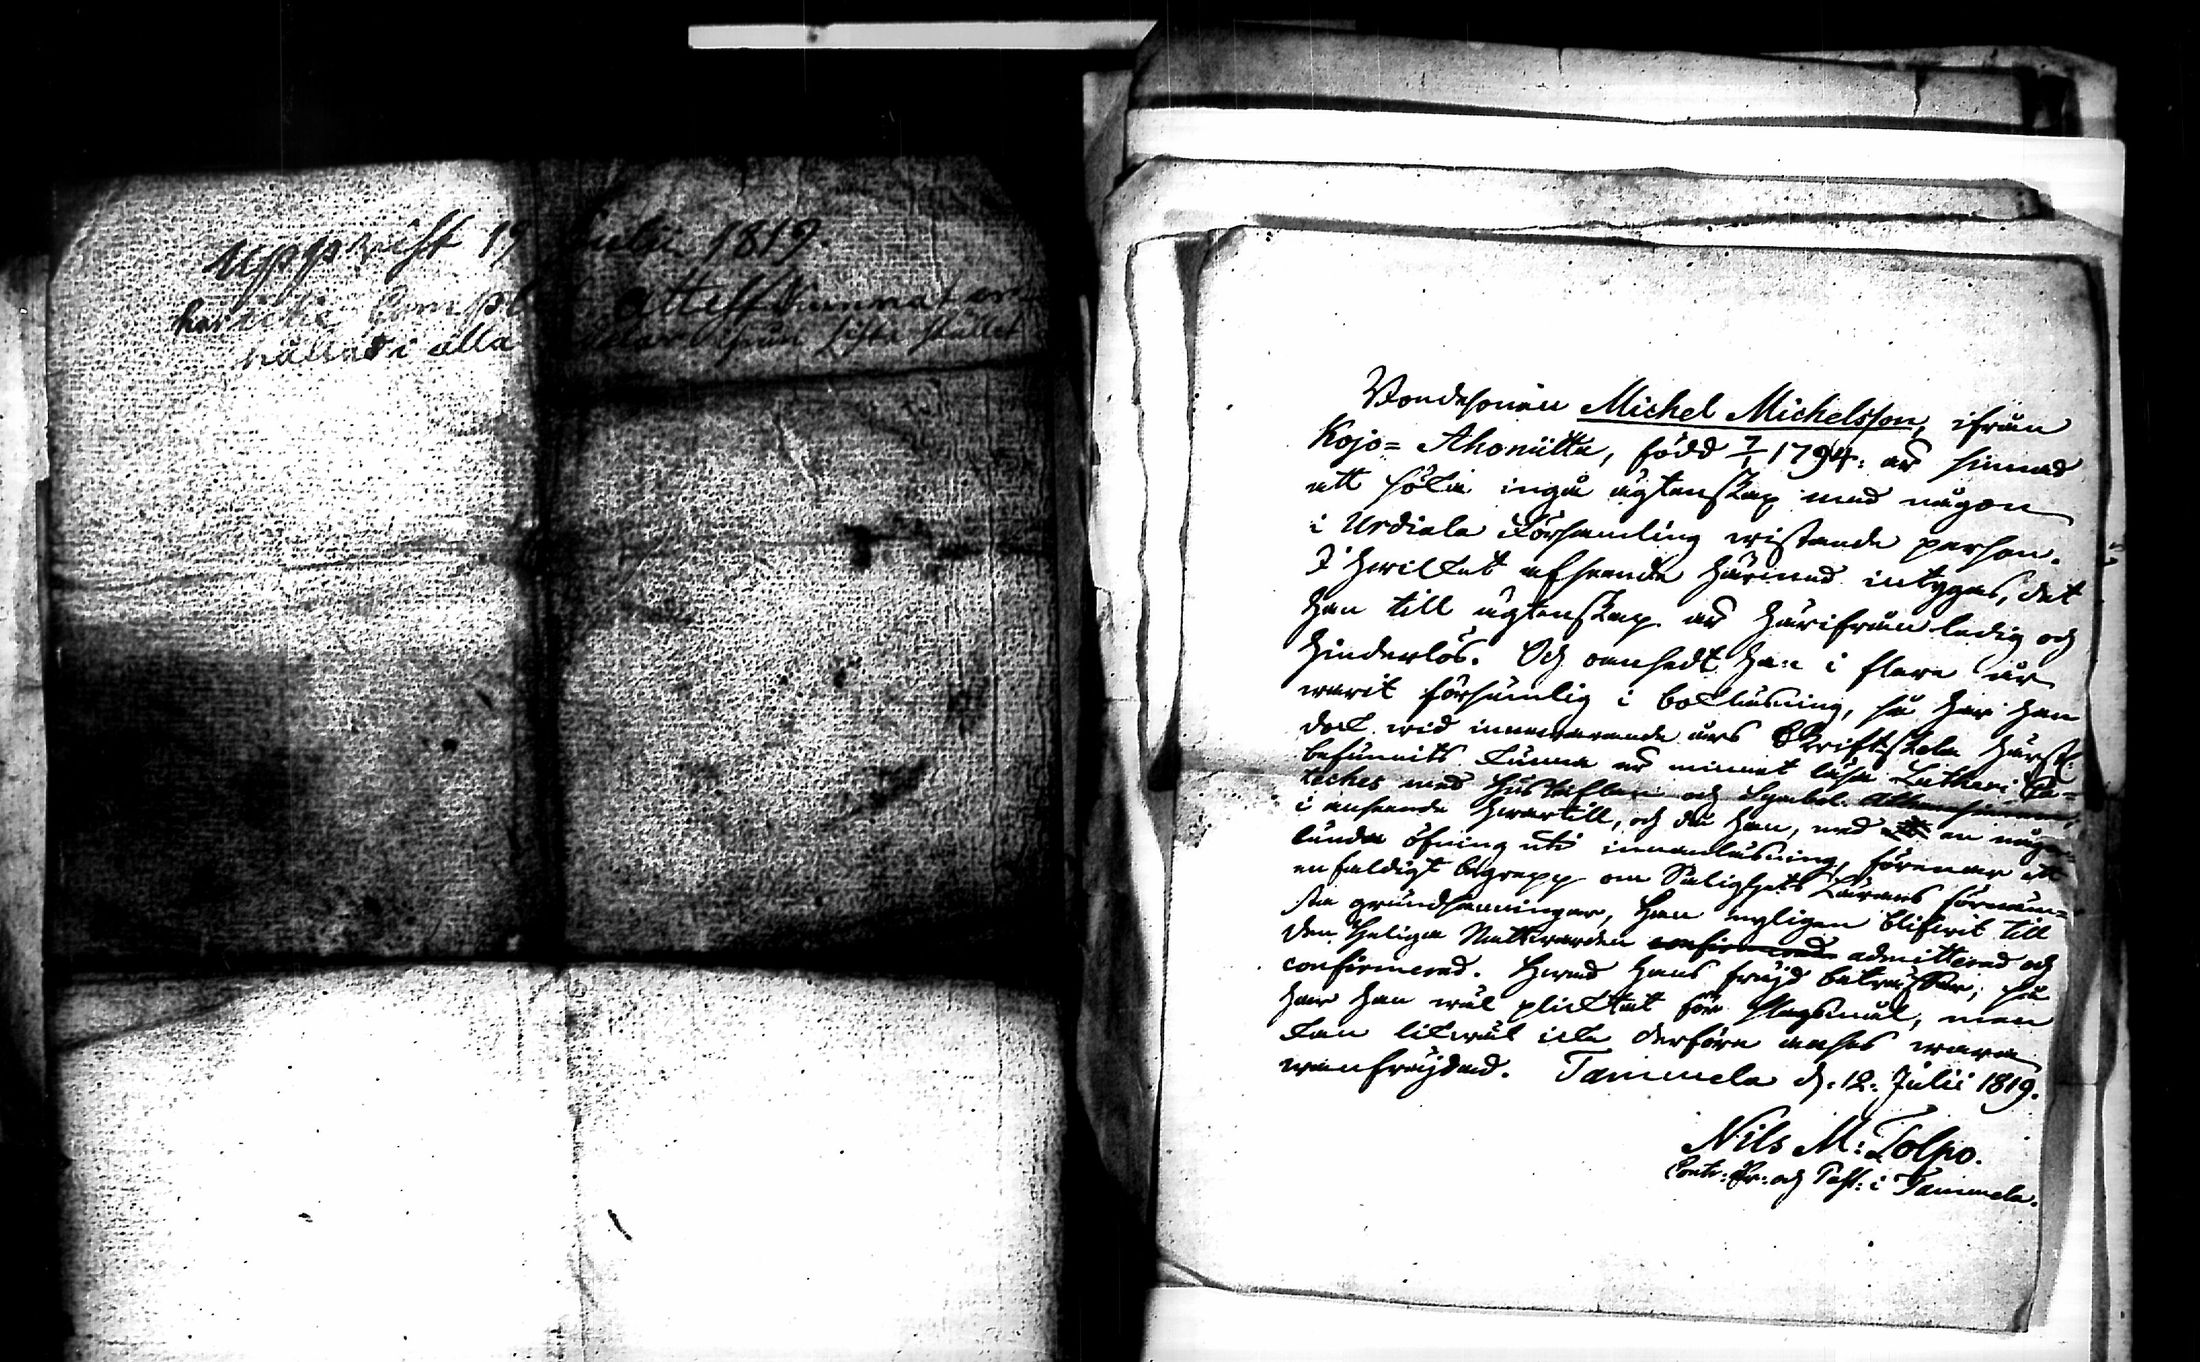 uppvist 19 Julii 1819.
har icke attest kunnat
hållas i alla sista stället
Bondesonen Michel Michelsson, ifrån
Kojo= Ahoniitta, född 7/1 1794: är sinnad
att söka ingå ägtenskap med någon
i Urdiala Församling vistande person.
I hvilket afseende härmed intygas, det
han till ägtenskap är härifrån ledig och
hinderlös. Och oansedt han i flere år
warit försumlig i bokläsning, så har han
dock wid innewarande års Skriftskola härst:
befunnits kunna ur minnet läsa Lutheri Ca=
teches med Hustaflan och Symbol: Athanasianum,
i anseende hwartill, och då han, med en någor=
lunda öfning uti innanläsning, förenar ett
enfaldigt begrepp om Salighets Lärans förnäm=
sta grundsanningar, han nyligen blifwit till
den Heliga Nattwarden confirmerad admitterad och
confirmerad. Hwad hans fräjd beträffar, så
har han wäl pliktat för Slagsmål, men
kan likwäl icke derföre anses wara
wanfräjdad. Tammela d: 12. Julii 1819.
Nils M: Tolpo.
Contr: Pr: och Past: i Tammela.